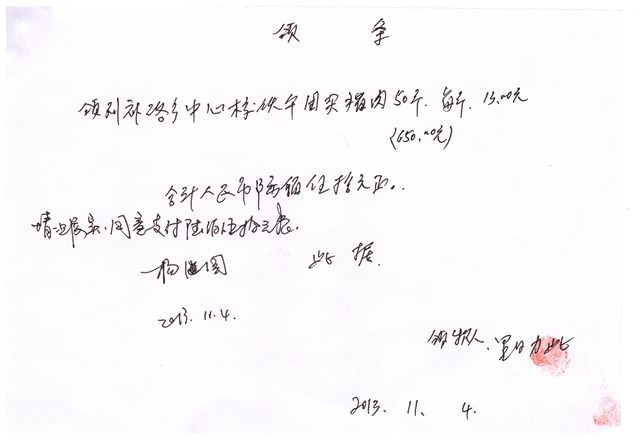 领条
领到补洛乡中心校伙午团买猪肉50斤.每斤.13.00元
(650.00元)
合计人民币陆佰伍拾元正.
情况属实.同意支付陆佰伍拾元整.
杨
此据.
2013.11.4.
领款人:里日力此
2013. 11. 4.